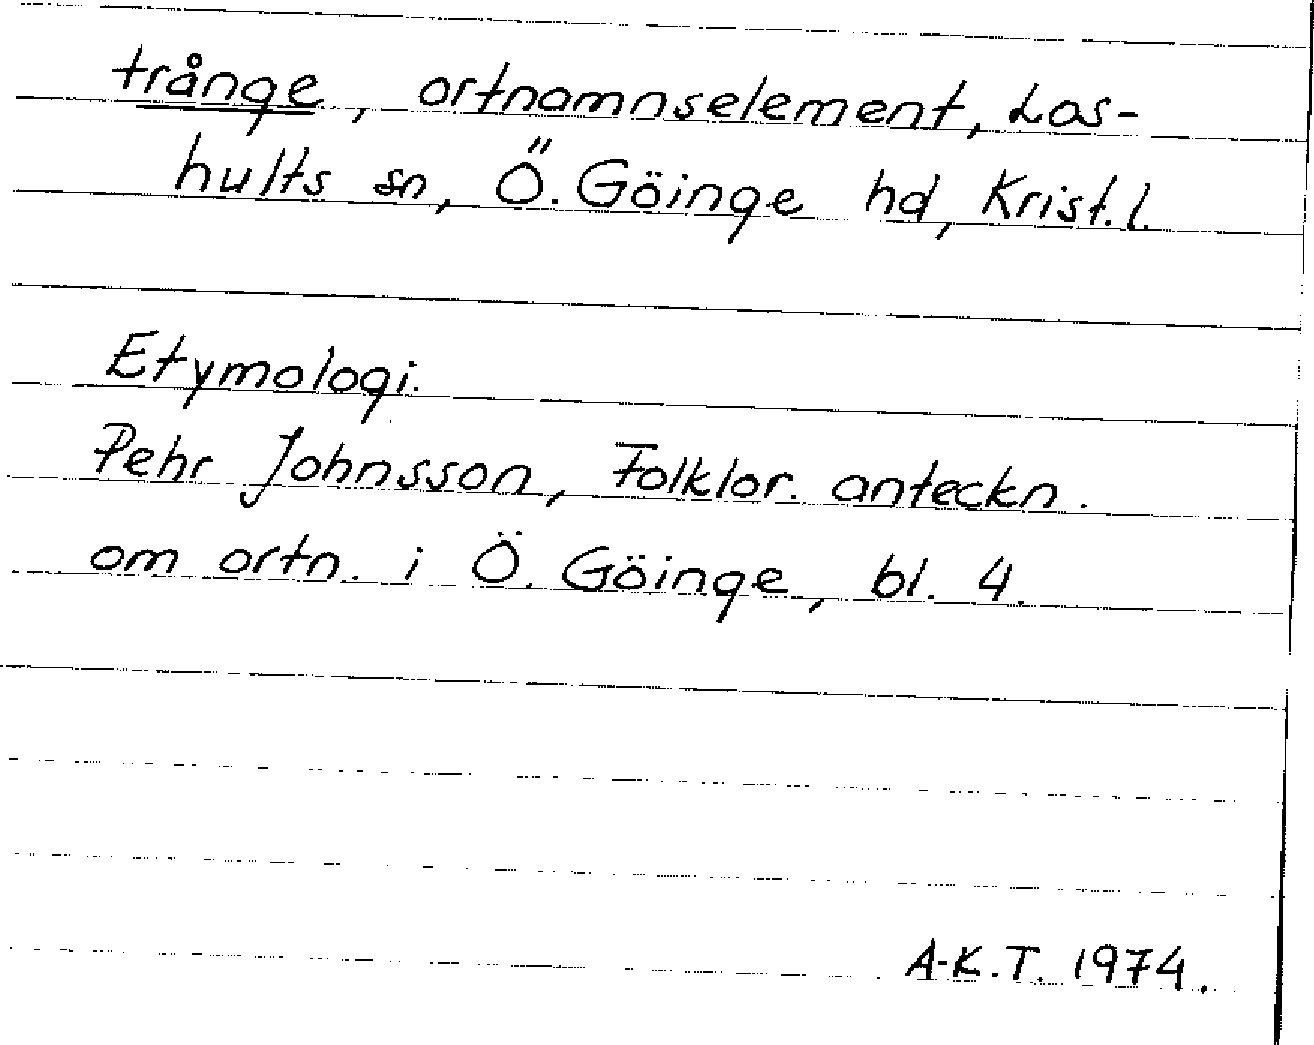 trånge, ortnamnselement, Los-
hults sn, Ö. Göinge hd, Krist. l.
Etymologi.
Pehr Johnsson, Folklor. anteckn.
om ortn. i Ö. Göinge, bl. 4.
A-K.T. 1974.